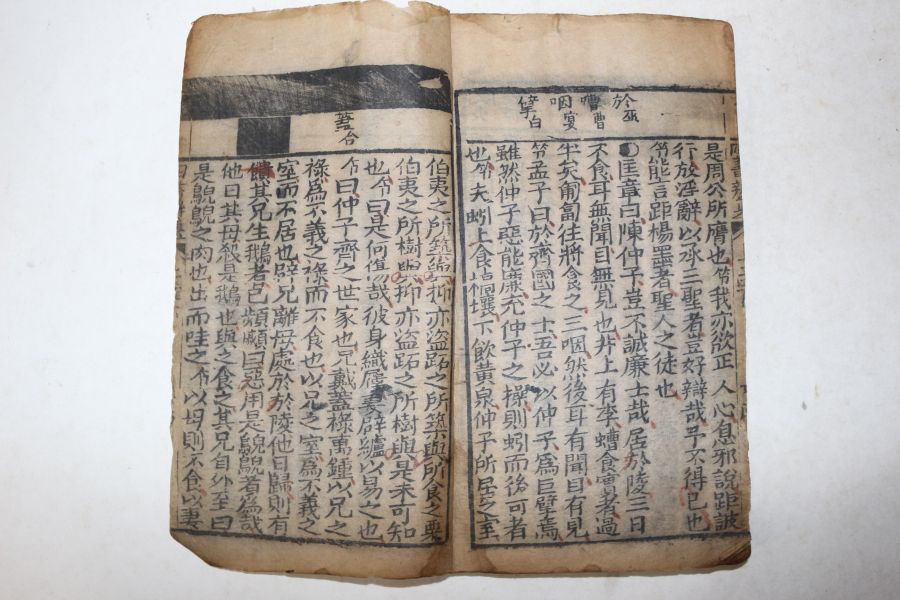 於
螬曹
咽宴
擘白
是周公所膺也我亦欲正人心息邪說距詖
行放淫辭以承三聖者豈好辯哉予不得已也
能言距楊墨者聖人之徒也
○匡章曰陳仲子豈不誠廉士哉居於陵三日
不食耳無聞目無見也井上有李螬食實者過
半矣匍匐往將食之三咽然後耳有聞目有見
孟子曰於齊國之士吾必以仲子爲巨擘焉
雖然仲子惡能廉充仲子之操則蚓而後可者
也夫蚓上食槁壤下飲黃泉仲子所居之室
蓋合
伯夷之所築與抑亦盜跖之所築與所食之粟
伯夷之所樹與抑亦盜跖之所樹與是未可知
也曰是何傷哉彼身織屨妻辟纑以易之也
曰仲子齊之世家也兄戴蓋祿萬鍾以兄之
祿爲不義之祿而不食也以兄之室爲不義之
室而不居也辟兄離母處於於陵他日歸則有
饋其兄生鵝者已頻顣曰惡用是鶂鶂者爲哉
他日其母殺是鵝也與之食之其兄自外至曰
是鶂鶂之肉也出而哇之以母則不食以妻